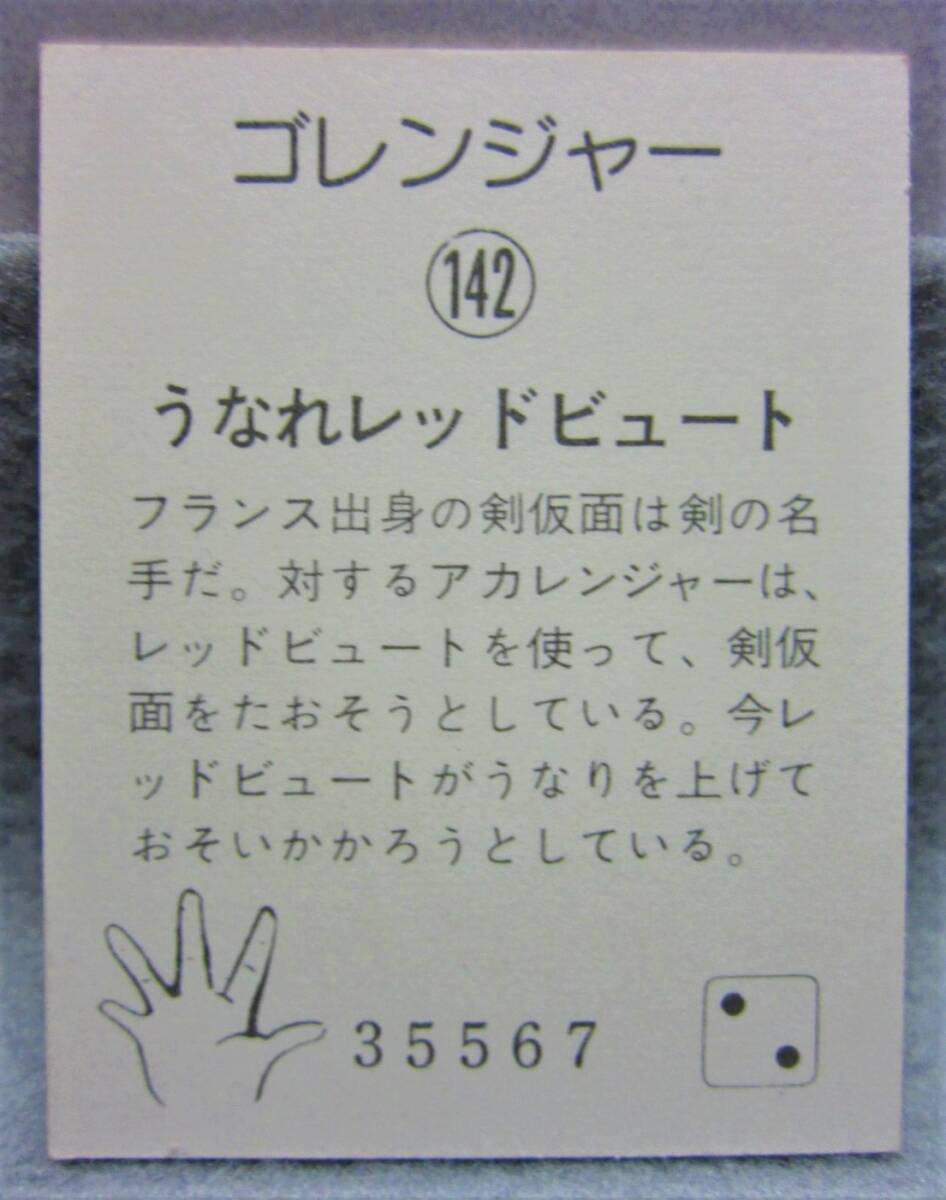 ゴレンジャー
142
うなれレッドビュート
フランス出身の剣仮面は剣の名
手だ。対するアカレンジャーは、
レッドビュートを使って、剣仮
面をたおそうとしている。今レ
ッドビュートがうなりを上げて
おそいかかろうとしている。
35567